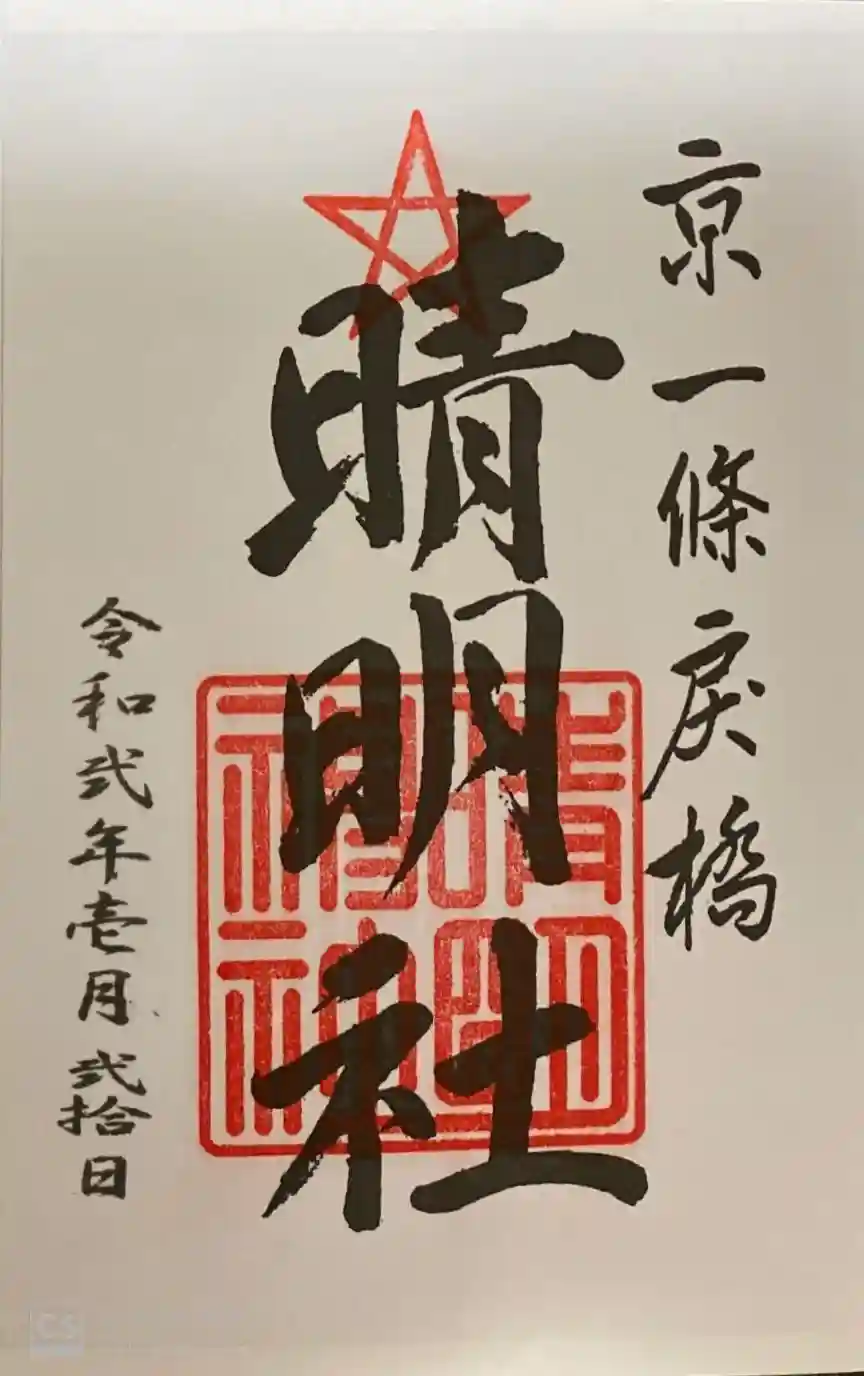 京一條戻橋
晴明社
令和弐年壱月弐拾日
CS